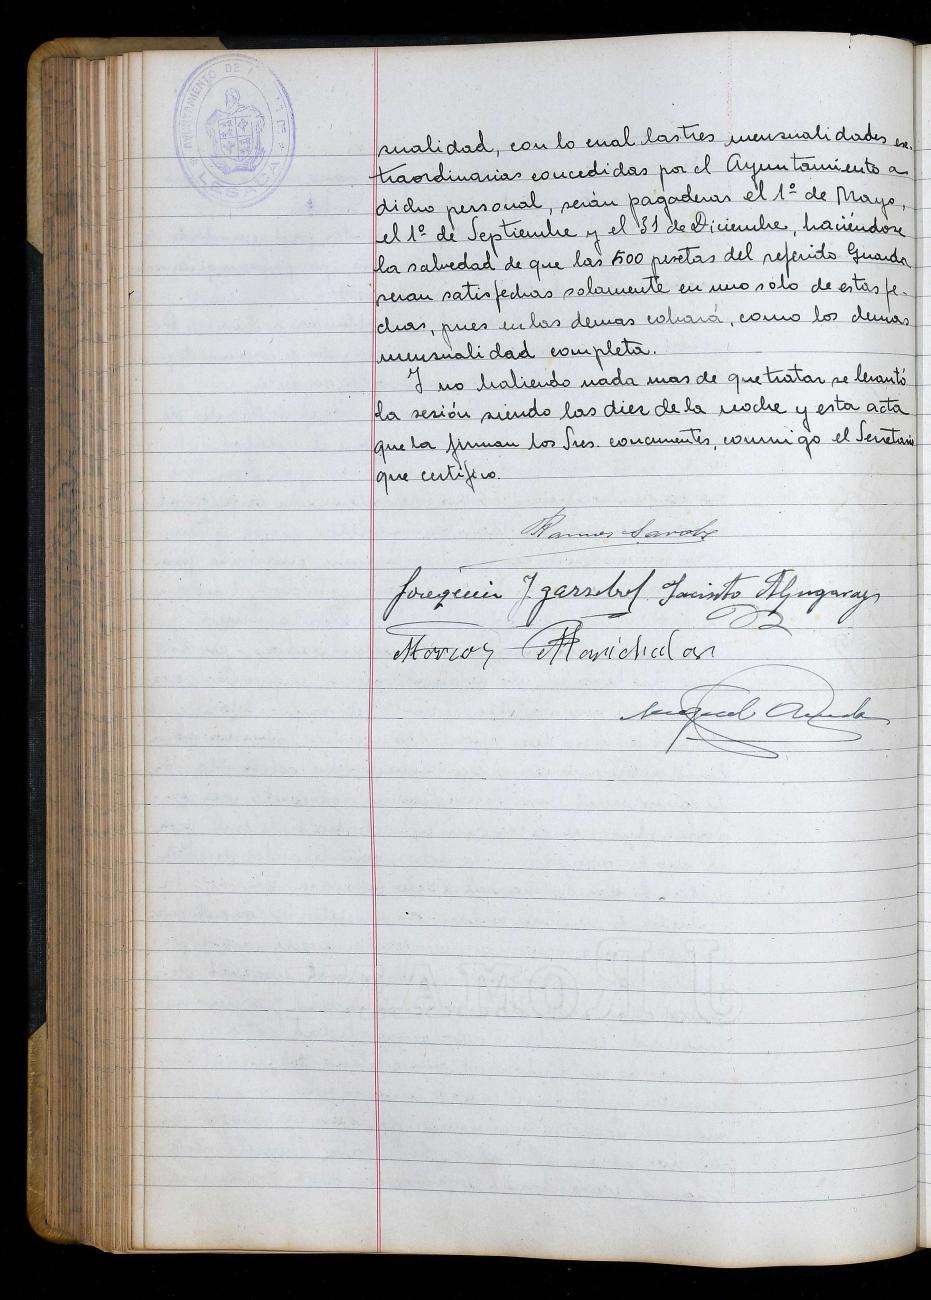 AYUNTAMIENTO DE
LESACA
sualidad, con lo cual las tres mensualidades ex-
traordinarias concedidas por el Ayuntamiento a
dicho personal, serán pagaderas el 1º de Mayo,
el 1º de Septiembre y el 31 de Diciembre, haciéndose
la salvedad de que las 500 pesetas del referido Guarda
seran satisfechas solamente en uno solo de estas fe-
chas, pues en las demas cobrará, como los demas
mensualidad completa.
Y no habiendo nada mas de que tratar se levantó
la sesión siendo las diez de la noche y esta acta
que la firman los Sres. concurrentes, conmigo el Secretario
que certifico.
Joaquin Jacinto
Marcos Marichalar
Miguel